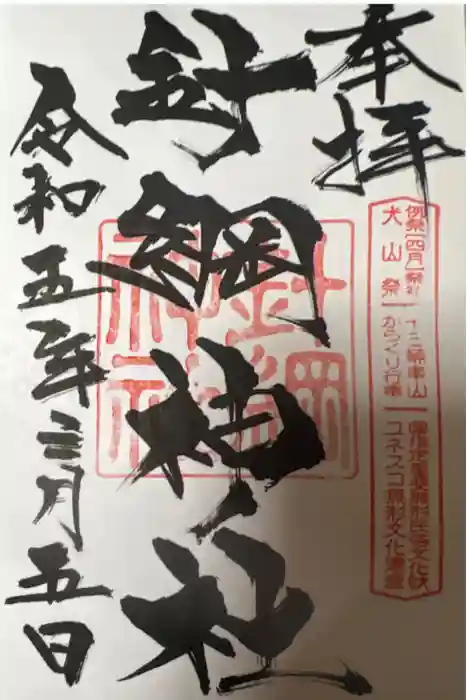 奉拝
例祭[四月]
十三輌車山
国指定重要無形民俗文化財
犬山祭
からくり行事
ユネスコ無形文化遺産
針綱神社
針綱
神社
令和五年三月五日